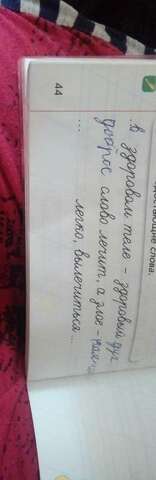 ...ствующие слова.
...в здоровом теле – здоровый дух
доброе слово лечит, а злое – кале...
...
легко, вылечиться...
44